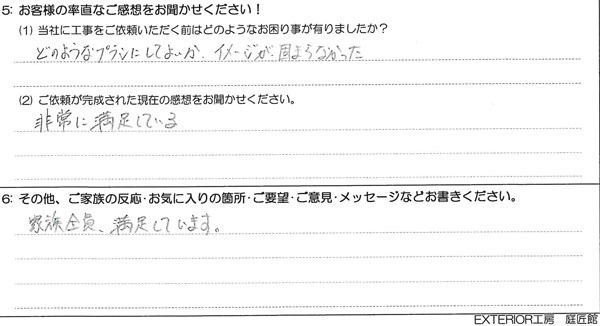 5: お客様の率直なご感想をお聞かせください!
(1) 当社に工事をご依頼いただく前はどのようなお困り事が有りましたか?
どのようなプランにしてよいか、イメージが固まらなかった
(2) ご依頼が完成された現在の感想をお聞かせください。
非常に満足している
6: その他、ご家族の反応・お気に入りの箇所・ご要望・ご意見・メッセージなどお書きください。
家族全員、満足しています。
EXTERIOR工房 庭匠館